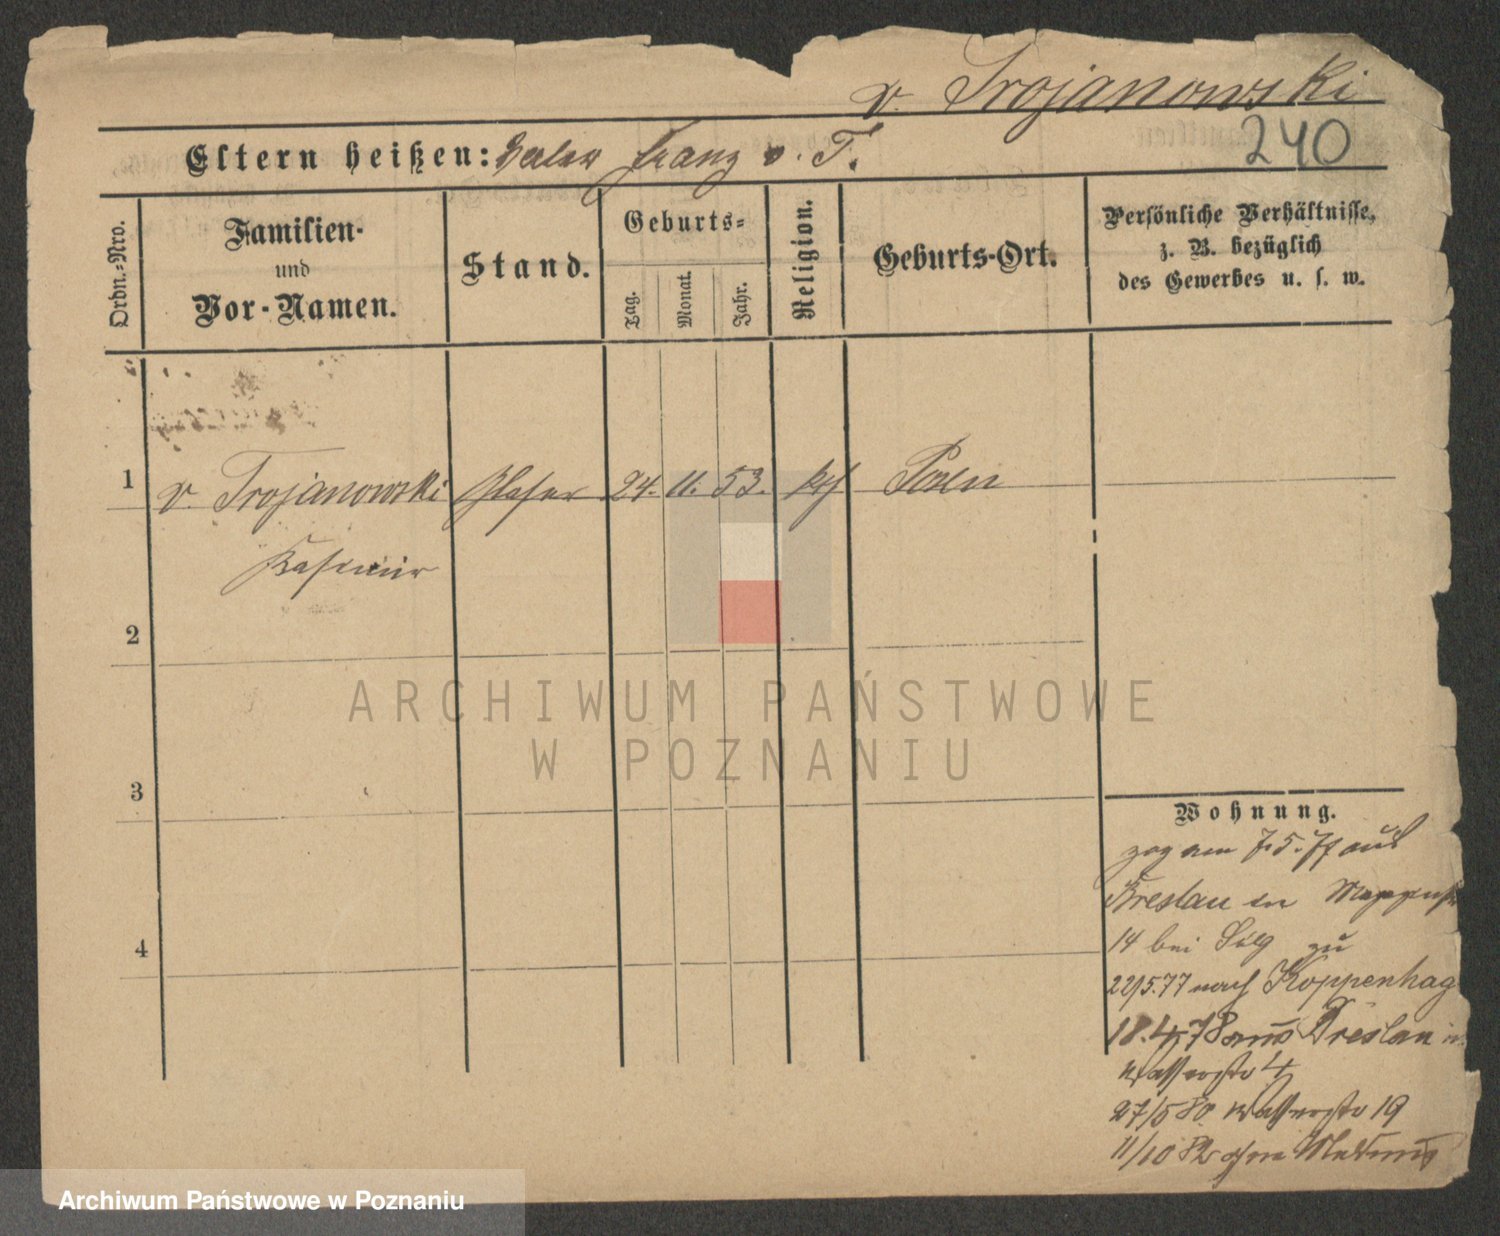 v. Trojanowski
240
Eltern heißen: Vater Franz v. T.
Ordn.-Nro.
Familien-
und
Vor-Namen.
Stand.
Geburts-
Tag.
Monat.
Jahr.
Religion.
Geburts-Ort.
Persönliche Verhältnisse,
z. B. bezüglich
des Gewerbes u. s. w.
1
v. Trojanowski Glaser 24. 11. 53. kth Posen
Kasimir
2
ARCHIWUM PAŃSTWOWE
W POZNANIU
3
4
Wohnung.
zog am 7.5.77 aus
Breslau in
14 bei zu
22/5.77 nach Koppenhag
18.4.78 aus Breslau in
Wasserstr 4
27/5 80. Wasserstr 19
11/10 82
Archiwum Państwowe w Poznaniu